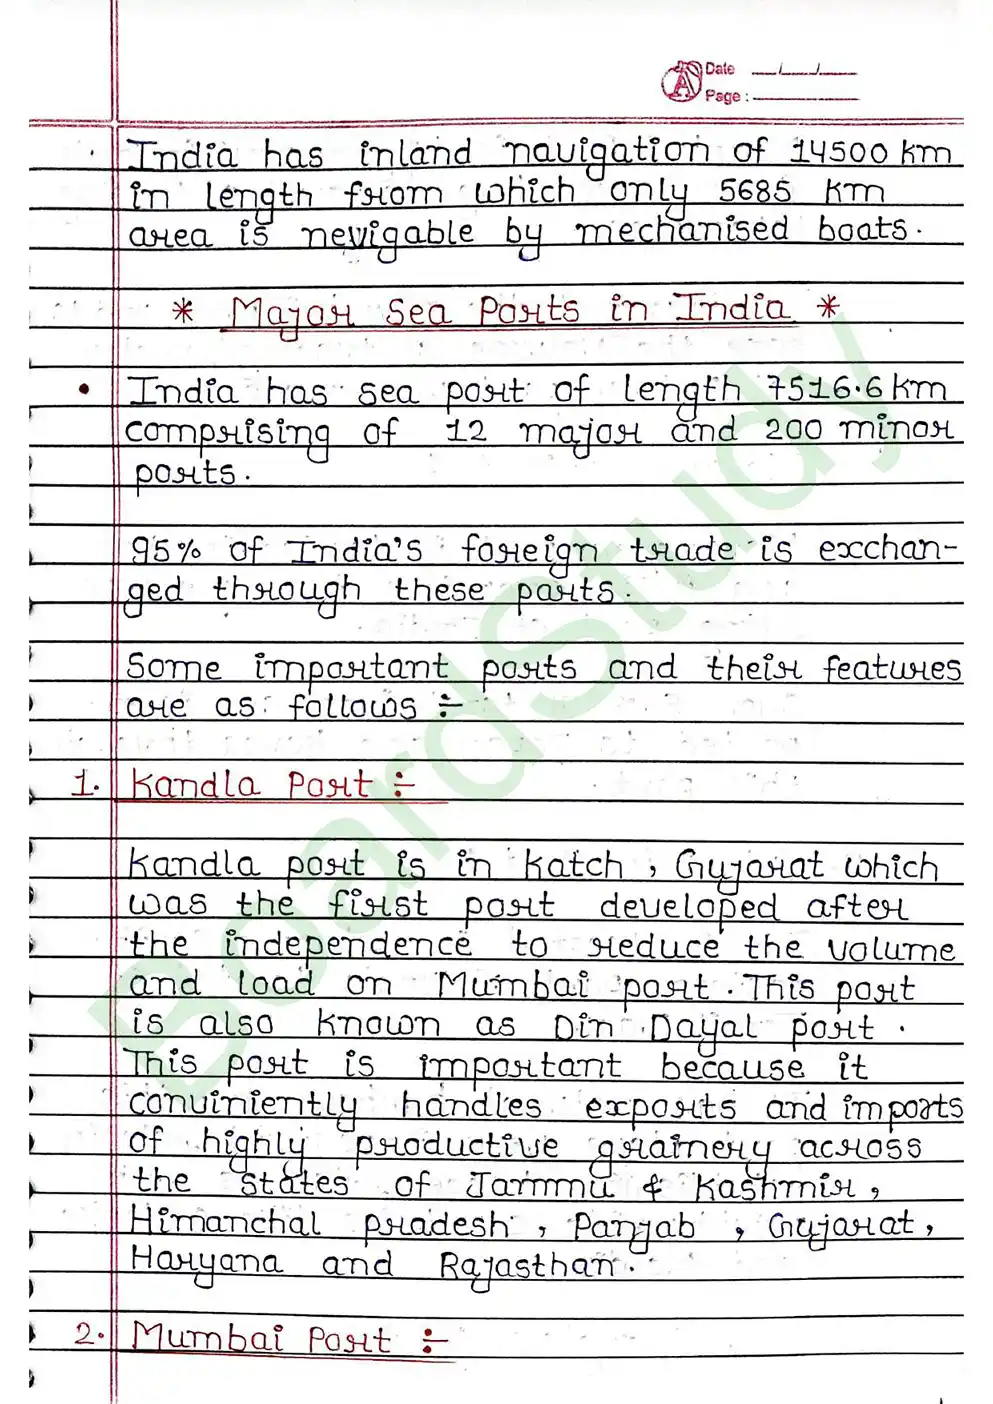 Date __/__/__
Page : ____
India has inland navigation of 14500 km
in length from which only 5685 km
area is nevigable by mechanised boats.
* Major Sea Ports in India *
• India has sea port of length 7516.6 km
comprising of 12 major and 200 minor
ports.
95% of India's foreign trade is exchan-
ged through these ports.
Some important ports and their features
are as follows ÷
1. Kandla Port ÷
Kandla port is in Katch, Gujarat which
was the first port developed after
the independence to reduce the volume
and load on Mumbai port. This port
is also known as Din Dayal port.
This port is important because it
conviniently handles exports and imports
of highly productive grainery across
the states of Jammu & Kashmir,
Himanchal Pradesh, Panjab, Gujarat,
Haryana and Rajasthan.
2. Mumbai Port ÷
BoardStudy